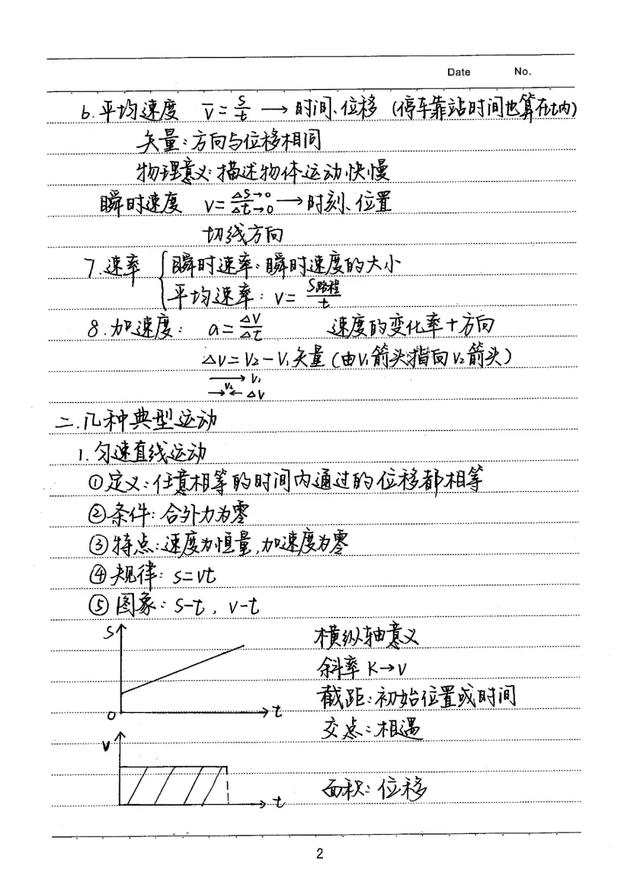 Date No.
6.平均速度 v̄=s/t → 时间、位移 (停车靠站时间也算在t内)
矢量:方向与位移相同
物理意义:描述物体运动快慢
瞬时速度 v=Δs→0/Δt→0 → 时刻、位置
切线方向
7.速率 { 瞬时速率:瞬时速度的大小
平均速率:v=s路程/t
8.加速度: a=Δv/Δt 速度的变化率+方向
Δv=v₂-v₁ 矢量(由v₁箭头指向v₂箭头)
v₁
v₂ Δv
二.几种典型运动
1.匀速直线运动
①定义:任意相等的时间内通过的位移都相等
②条件:合外力为零
③特点:速度为恒量,加速度为零
④规律:s=vt
⑤图象:s-t, v-t
s
横纵轴意义
斜率 K→v
截距:初始位置或时间
0 t
交点:相遇
v
面积:位移
t
2